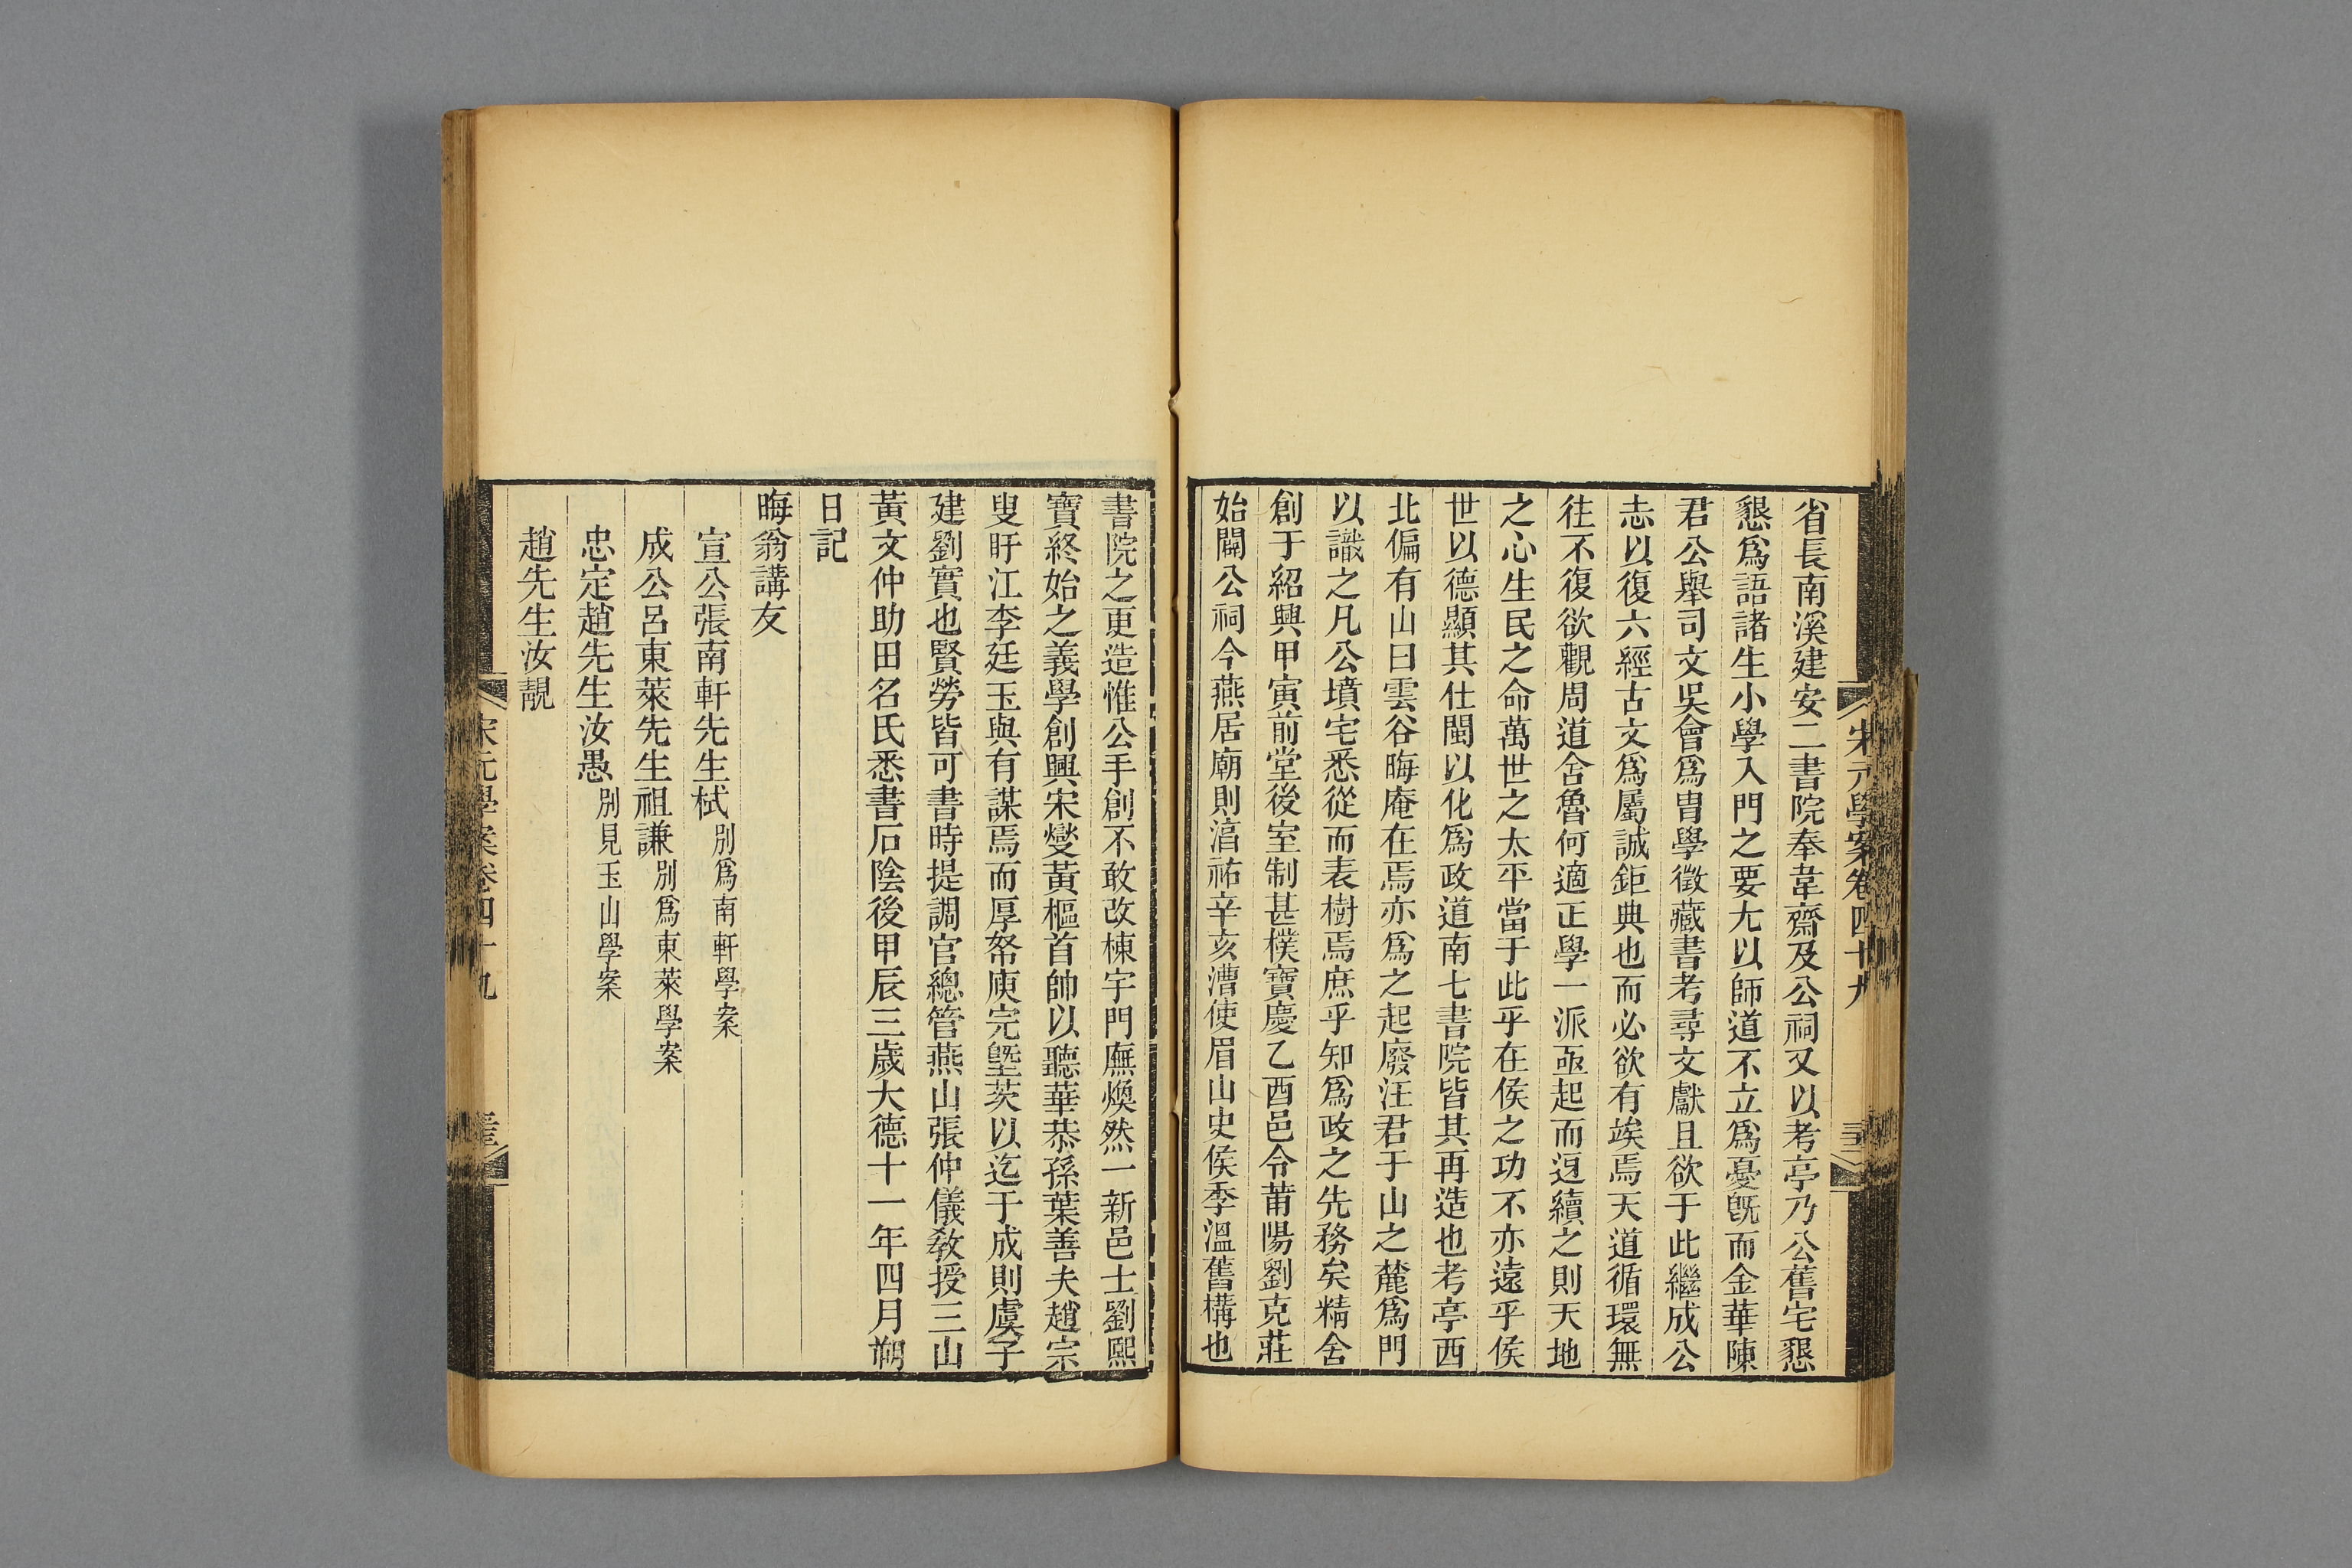 宋元學案卷四十九
省長南溪建安二書院奉韋齋及公祠又以考亭乃公舊宅懇
懇爲語諸生小學入門之要尢以師道不立爲憂旣而金華陳
君公舉司文吳會爲胄學徵藏書考尋文獻且欲于此繼成公
志以復六經古文爲屬誠鉅典也而必欲有竢焉天道循環無
往不復欲觀周道舍魯何適正學一派亟起而迓續之則天地
之心生民之命萬世之太平當于此乎在侯之功不亦遠乎侯
世以德顯其仕閩以化爲政道南七書院皆其再造也考亭西
北偏有山曰雲谷晦庵在焉亦爲之起廢汪君于山之麓爲門
以識之凡公墳宅悉從而表樹焉庶乎知爲政之先務矣精舍
創于紹興甲寅前堂後室制甚樸寶慶乙酉邑令莆陽劉克莊
始闢公祠今燕居廟則湻祐辛亥漕使眉山史侯季溫舊構也
書院之更造惟公手創不敢改棟宇門廡煥然一新邑士劉熙
寶終始之義學創興宋燮黃樞首帥以聽華恭孫葉善夫趙宗
叟盱江李廷玉與有謀焉而厚帑庾完塈茨以迄于成則虞子
建劉實也賢勞皆可書時提調官總管燕山張仲儀敎授三山
黃文仲助田名氏悉書石陰後甲辰三歲大德十一年四月朔
日記
晦翁講友
宣公張南軒先生栻別爲南軒學案
成公呂東萊先生祖謙別爲東萊學案
忠定趙先生汝愚別見玉山學案
趙先生汝靚
宋元學案卷四十九